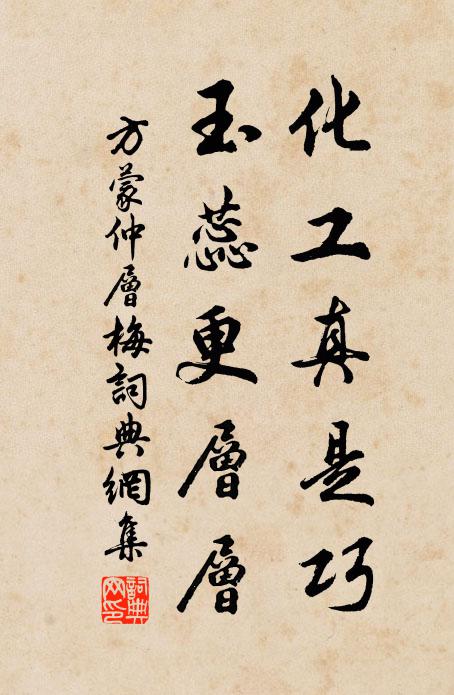 化工真是巧
玉蕊更層層
方蒙仲層梅詞典網集
詞典網印